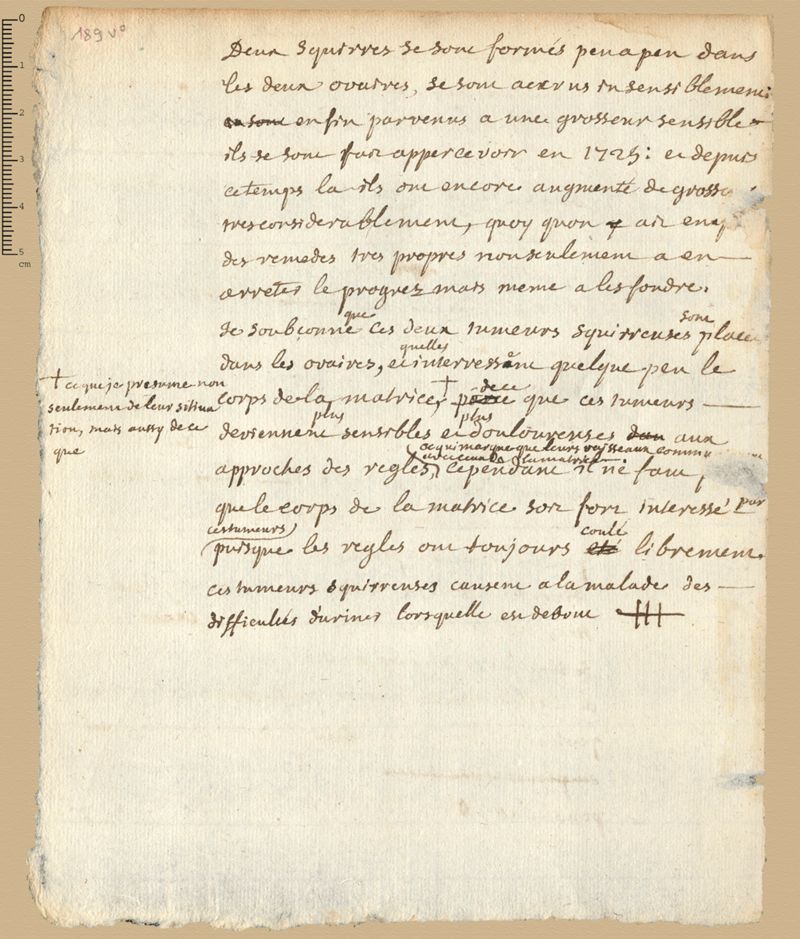 189 v°
Deux squirres se sont formés peu a peu dans
les deux ovaires, se sont accrus insensiblement
en sont enfin parvenus a une grosseur sensible
ils se sont fait appercevoir en 1725: et depuis
ce temps la ils ont encore augmenté de grosse
tres considerablement, quoy quon y ait
des remedes tres propres non seulement a en
arreter le progrez mais meme a les fondre.
que sont
Je soubconne ces deux tumeurs squirreuses place
quelles
dans les ovaires, et interressent quelque peu le
† ce que je presume non
seulement de leur situa
tion, mais aussy de ce
que
de ce
corps de la matrice, † parce que ces tumeurs
plus plus
deviennent sensibles et douloureuses dan aux
ce qui marque que leurs vaisseaux commu
avec ceux de la matrice
approches des regles, cependant il ne faut
que le corps de la matrice soit fort interessé par
ces tumeurs coulé
puisque les regles ont toujours eté librement.
ces tumeurs squirreuses causent a la malade des
difficultés d'uriner lorsquelle est debout